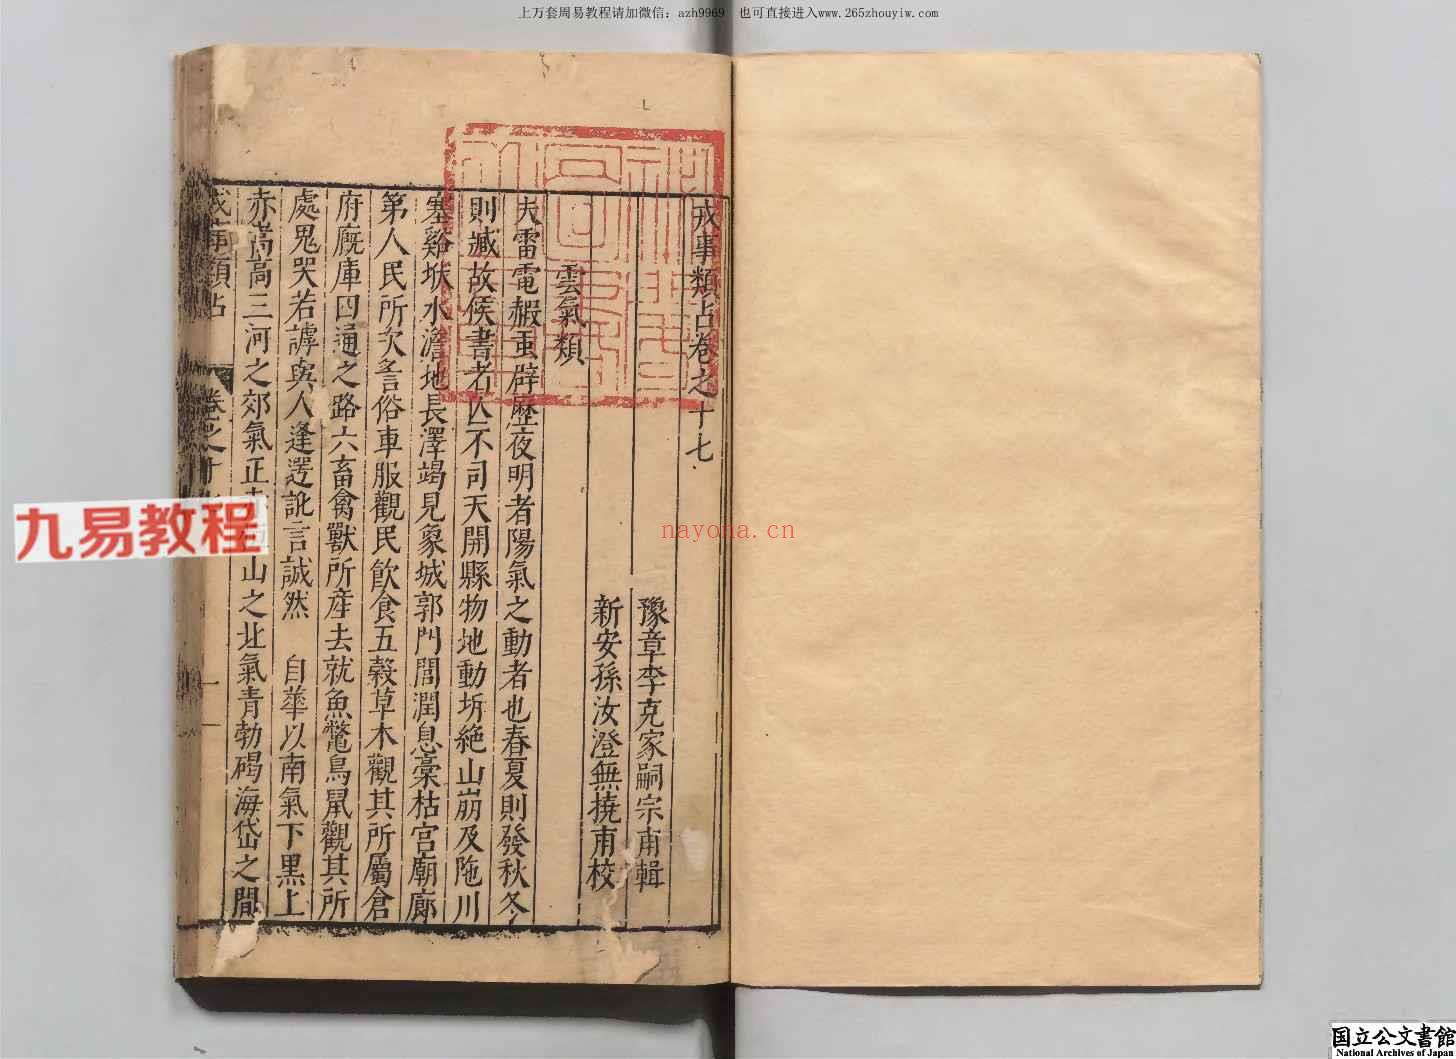 上万套周易教程请加微信：azh9969 也可直接进入www.265zhouyiw.com
戎事類占卷之十七
豫章李克家嗣宗甫輯
新安孫汝澄無撓甫校
雲氣類
夫雷電赮䖝辟歷夜明者陽氣之動者也春夏則發秋冬
則藏故候書者亾不司天開縣物地動坼絶山崩及陁川
塞谿垘水澹地長澤竭見象城郭門閭潤息藁枯宫廟廊
第人民所次謠俗車服觀民飲食五穀草木觀其所屬倉
府廐庫四通之路六畜禽獸所産去就魚鱉鳥鼠觀其所
處鬼哭若謼與人逢遌訛言誠然 自華以南氣下黒上
赤嵩高三河之郊氣正 山之北氣青勃碣海岱之間
戎事類占 卷之十 一
九易教程
nayona.cn
国立公文書館
National Archives of Japan